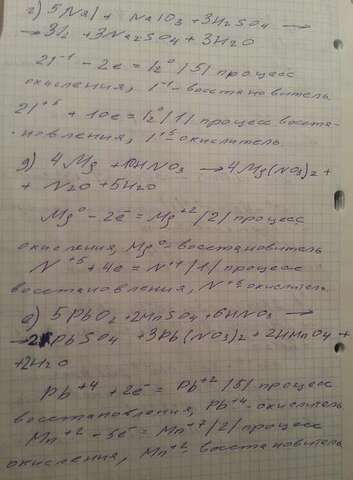 г) 5NaI + NaIO3 + 3H2SO4 →
→ 3I2 + 3Na2SO4 + 3H2O
2I⁻¹ - 2e = I2⁰ |5| процесс
окисления, I⁻¹ - восстановитель
2I⁺⁵ + 10e = I2⁰ |1| процесс восста-
новления, I⁺⁵ окислитель.
д) 4Mg + 10HNO3 → 4Mg(NO3)2 +
+ N2O + 5H2O
Mg⁰ - 2e = Mg⁺² |2| процесс
окисления, Mg⁰ - восстановитель
N⁺⁵ + 4e = N⁺¹ |1| процесс
восстановления, N⁺⁵ окислитель.
е) 5PbO2 + 2MnSO4 + 6HNO3 →
→ 2PbSO4 + 3Pb(NO3)2 + 2HMnO4 +
+ 2H2O
Pb⁺⁴ + 2e = Pb⁺² |5| процесс
восстановления, Pb⁺⁴ - окислитель
Mn⁺² - 5e = Mn⁺⁷ |2| процесс
окисления, Mn⁺² - восстановитель